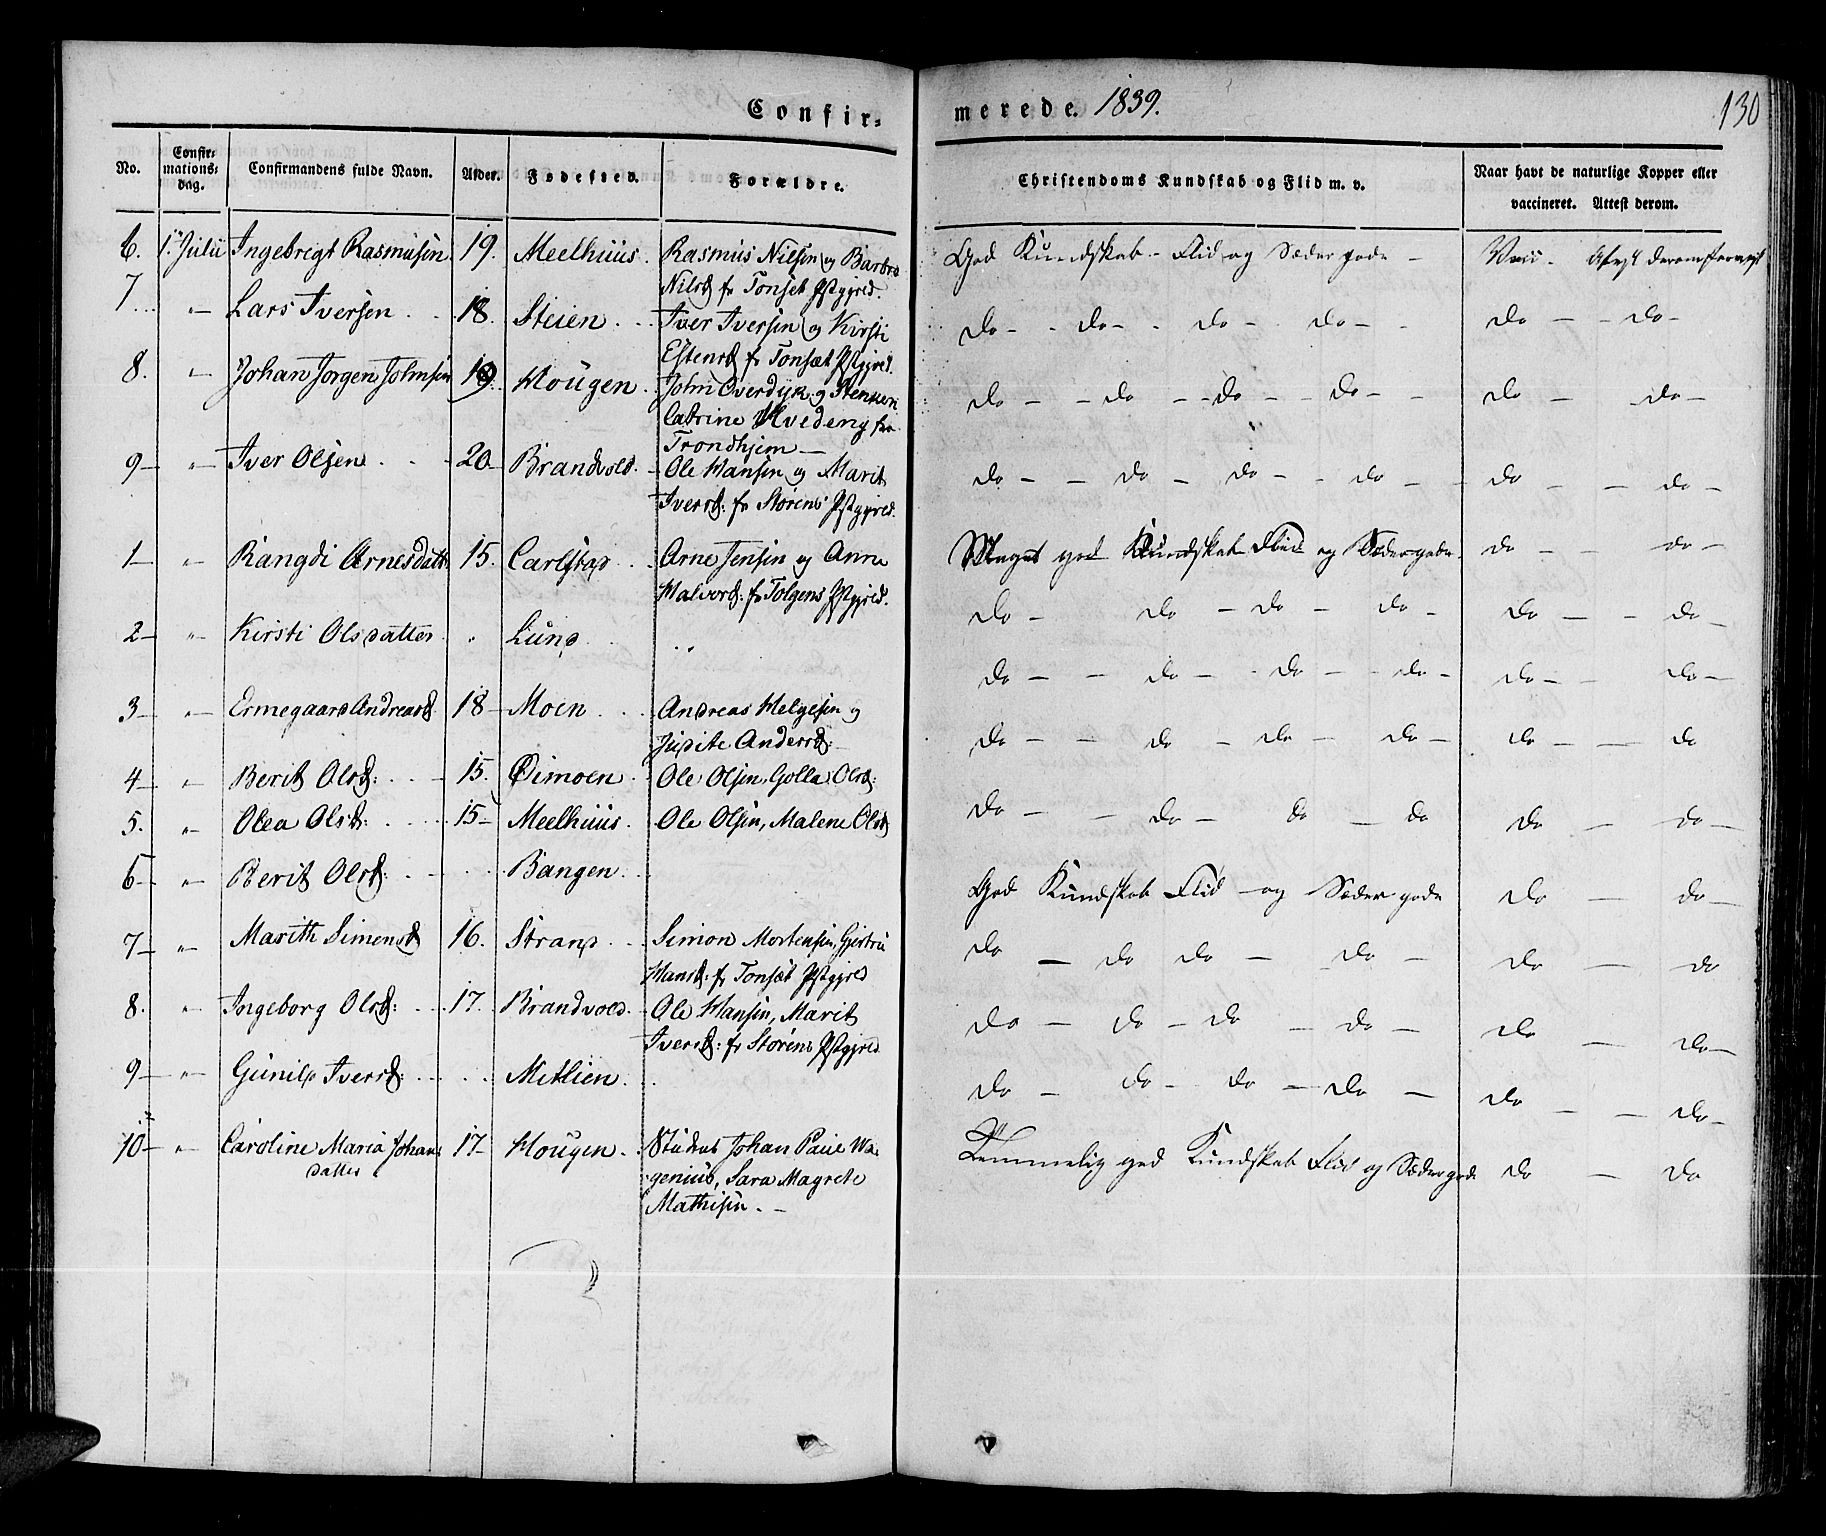 Confir- merede. 1839. 130
No. Confir-mations-dag. Confirmandens fulde Navn. Alder. Fødested. Forældre. Christendoms Kundskab og Flid m. v. Naar havt de naturlige Kopper eller vaccineret. Attest derom.
6. 1. Julii Ingebrigt Rasmusen 19. Meelhuus. Rasmus Nilsen og Barbro God Kundskab - Flid og Sæder gode - Vacc.
Nilsd fr Tonset Pstgjred.
7... " Lars Iversen 18. Steien Iver Iversen og Kirsti do - do - do - do - do - do -
Estensd fr Tonsæt Pstgjred.
8. " Johan Jørgen Johnsen 19. Hougen John Overdyk og
Catrine Hvedeng fra do - do - do - do - do - do -
Trondhjem -
9 - " Iver Olsen 20 Brandvold. Ole Hansen og Marit do - do - do - do - do - do -
Iversd: fr Størens Pstgjred.
1 - " Rangdi Arnesdatt. 15. Carlstad Arne Jensen og Anne Meget god Kundskab Flid og Sæder gode. do - do -
Halvord: fr Tolgens Pstgjred.
2 - " Kirsti Olsdatter " Lund " do - do - do - do - do - do -
3 - " Ermegaard Andreasd 18 - Moen Andreas Helgesen og do - do - do - do - do - do -
Judite Andersd: -
4 - " Berit Olsd: 15. Øimoen Ole Olsen, Golla Olsd: do - do - do - do - do - do
5. " Olea Olsd: 15 - Meelhuus. Ole Olsen, Malene Olsd do - do - do - do do - do -
6 - " Berit Olsd: Bangen God Kundskab Flid - og Sæder gode do - do -
7 - " Marith Simensd 16. Strand Simon Mortensen, Gjertru do - do do - do - do - do
Hansd: fr Tonsæt Pstgjred
8. " Ingeborg Olsd: 17. Brandvold. Ole Hansen, Marit do - do - do - do - do - do -
Iversd: fr Størens Pstgjred
9 - " Gunild Iversd: Metlien do - do - do - do - do - do -
10 - " Caroline Maria Johans 17 - Hougen Studens Johan Paul Wa- Temmelig god Kundskab Flid og Sæder gode do - do
datter genius, Sara Magrete
Mathisen. -